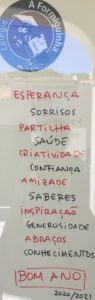 Colégio A Formiguinha
ESPERANÇA
SORRISOS
PARTILHA
SAÚDE
CRIATIVIDADE
CONFIANÇA
AMIZADE
SABERES
INSPIRAÇÃO
GENEROSIDADE
ABRAÇOS
CONHECIMENTOS
BOM ANO
2020/2021